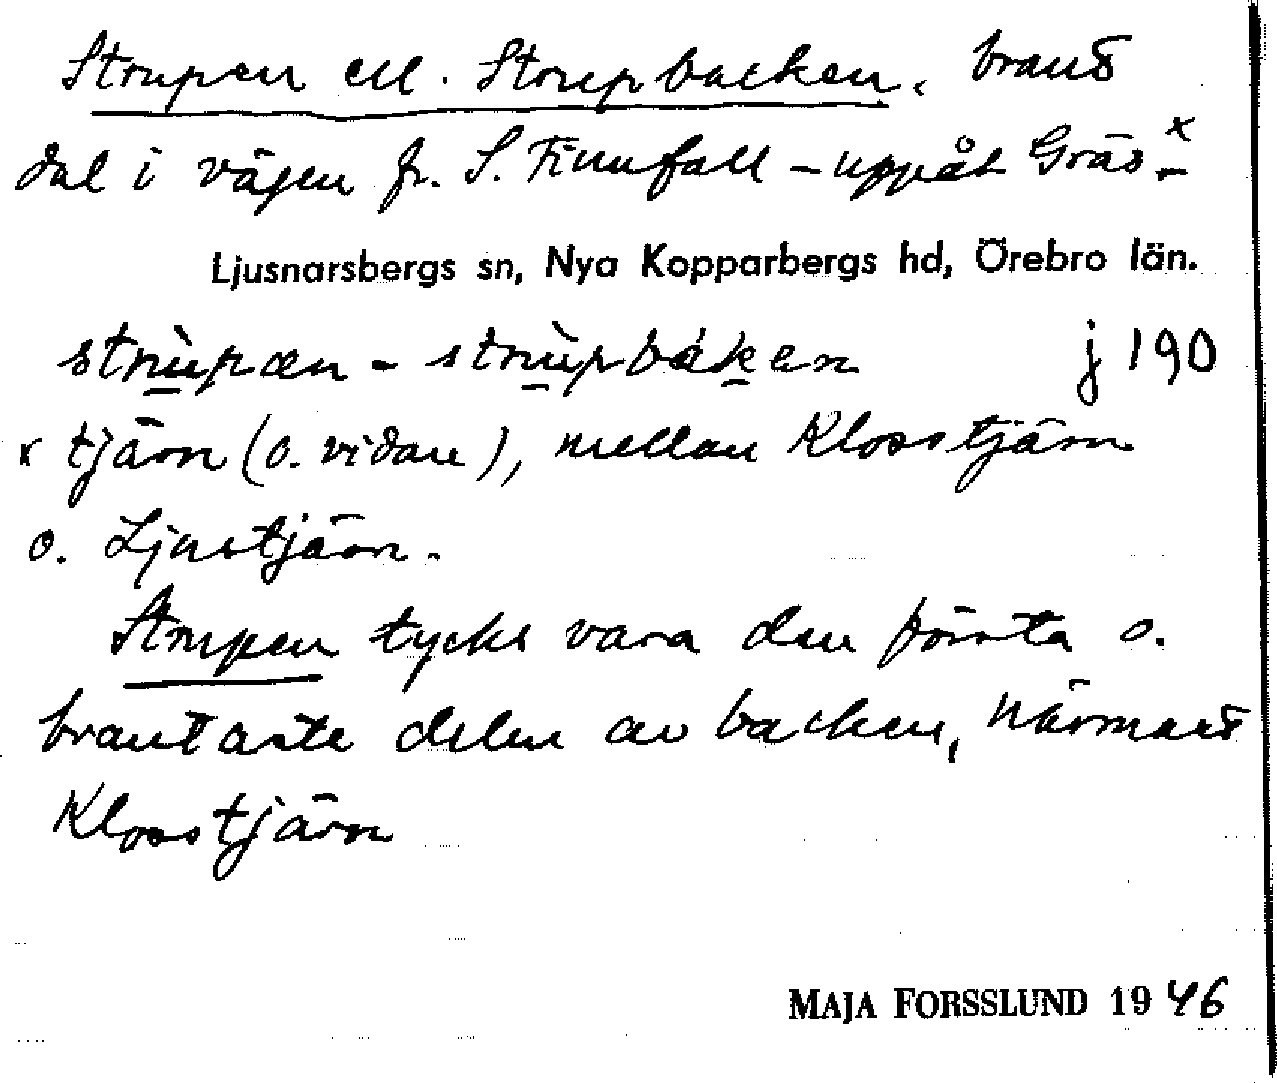 Strupen ell. Strupbacken, brant
dal i vägen fr. S. Finnfall – uppåt Gräs-ˣ
Ljusnarsbergs sn, Nya Kopparbergs hd, Örebro län.
strùpæn - strùpbaken j 190
x tjärn (o. vidare), mellan Klosstjärn
o. Ljustjärn.
Strupen tycks vara den första o.
brantaste delen av backen, närmast
Klosstjärn
MAJA FORSSLUND 1946